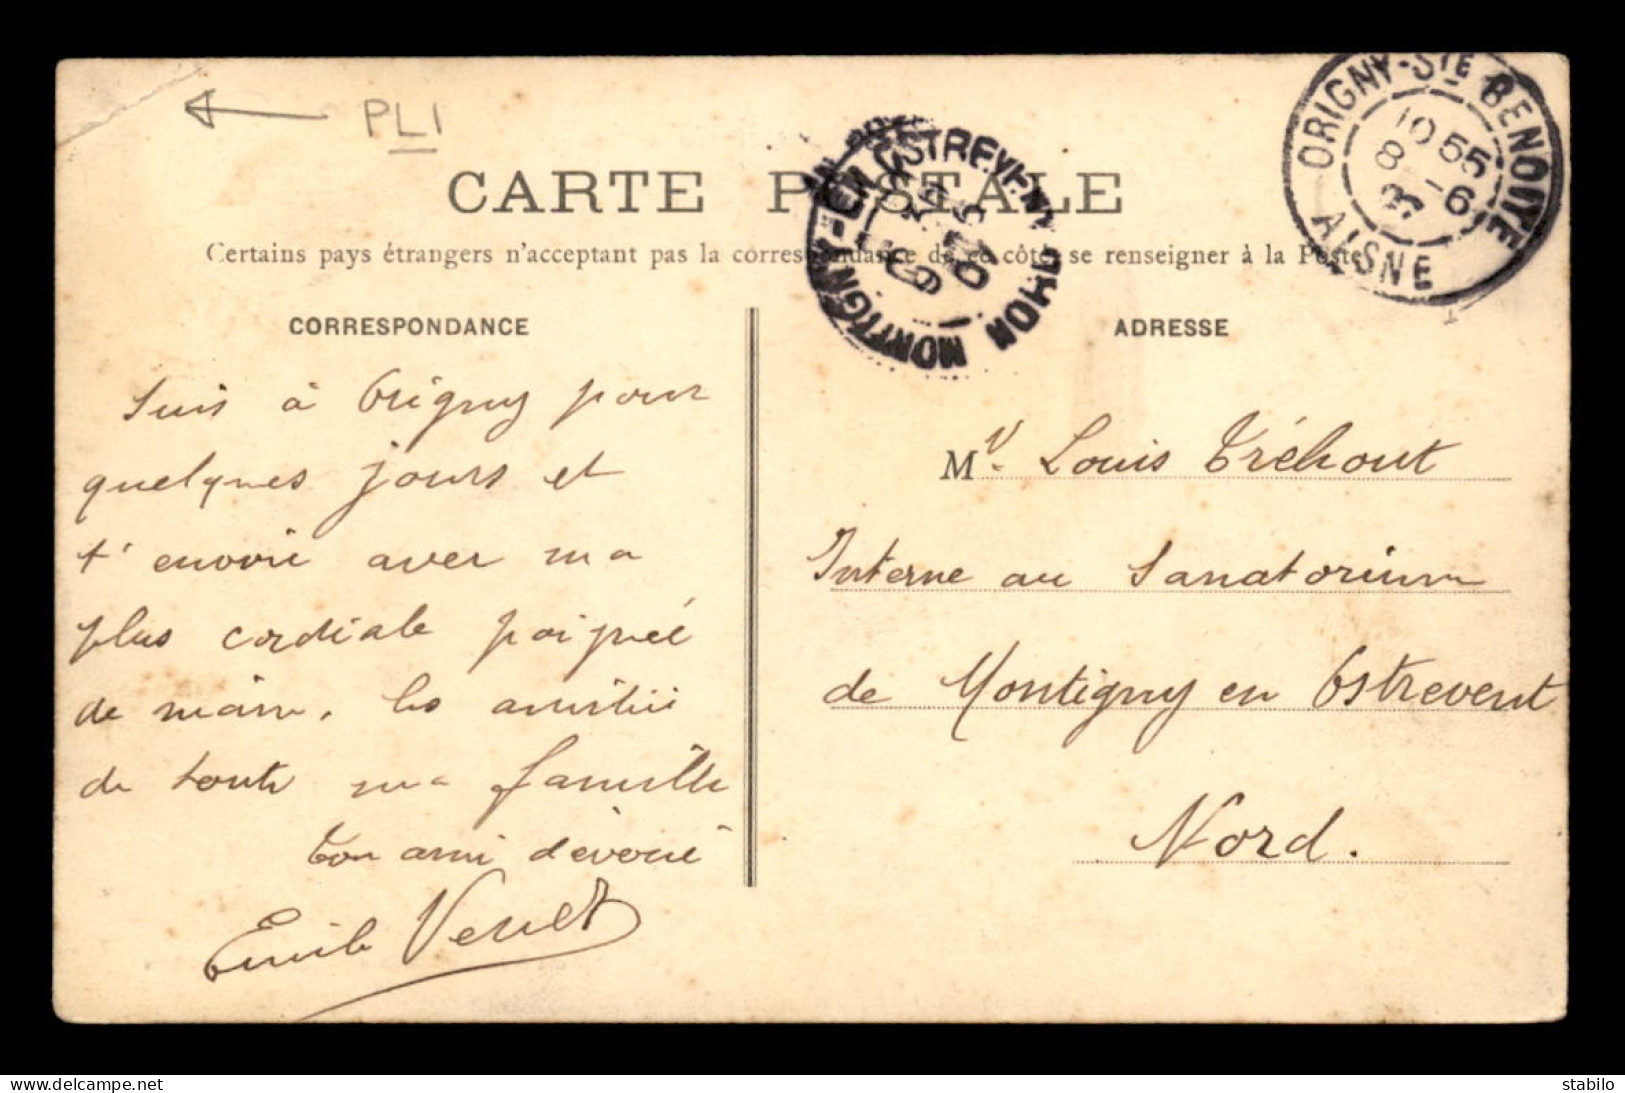 PLI
CARTE POSTALE
Certains pays étrangers n'acceptant pas la correspondance de ce côté, se renseigner à la Poste
CORRESPONDANCE
Suis à Origny pour
quelques jours et
t'envoie avec ma
plus cordiale poignée
de main, les amitiés
de toute ma famille
Ton ami dévoué
Emile Verlet
ADRESSE
Mr. Louis Tréhout
Interne au Sanatorium
de Montigny en Ostrevent
Nord.
ORIGNY-STE BENOITE
10 55
8 -6
AISNE
MONTIGNY-EN-OSTREVENT
NORD
www.delcampe.net
stabilo